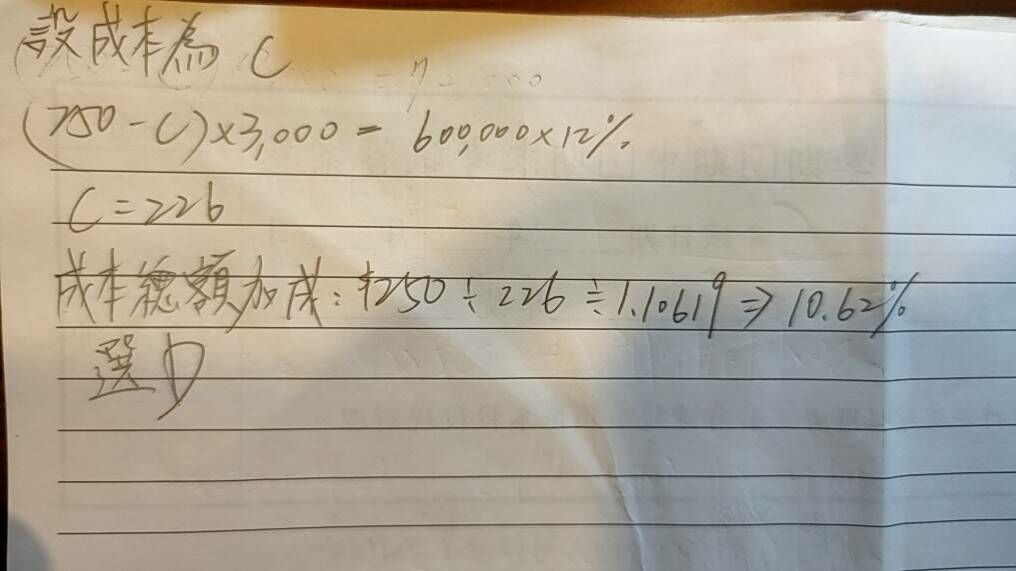 設成本為 C
(250-C)×3,000 = 600,000×12%
C=226
成本總額加成:$250÷226≒1.10619 ⇒ 10.62%
選D